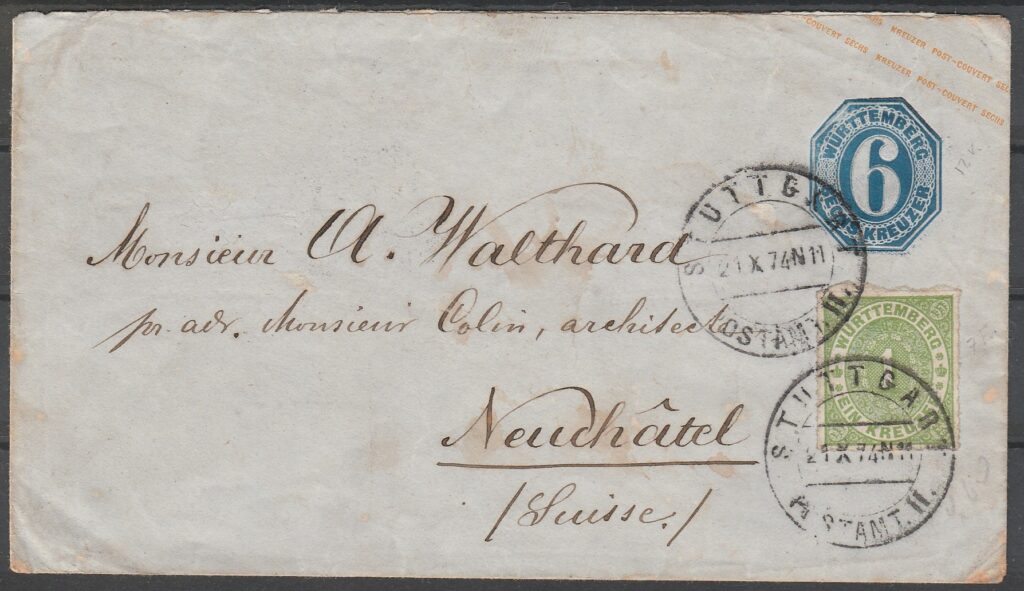 COUVERT SECHS KREUZER POST-COUVERT SECHS
KREUZER POST-COUVERT SECHS
WÜRTTEMBERG
6
SECHS KREUZER
12 K.
STUTTGART
21 X 74 N 11
POSTAMT. II.
Monsieur A. Walthard
pr adr. Monsieur Colin, architecte
Neuchâtel
(Suisse.)
WÜRTTEMBERG
1
EIN KREUZER
STUTTGART
21 X 74 N 11
POSTAMT. II.